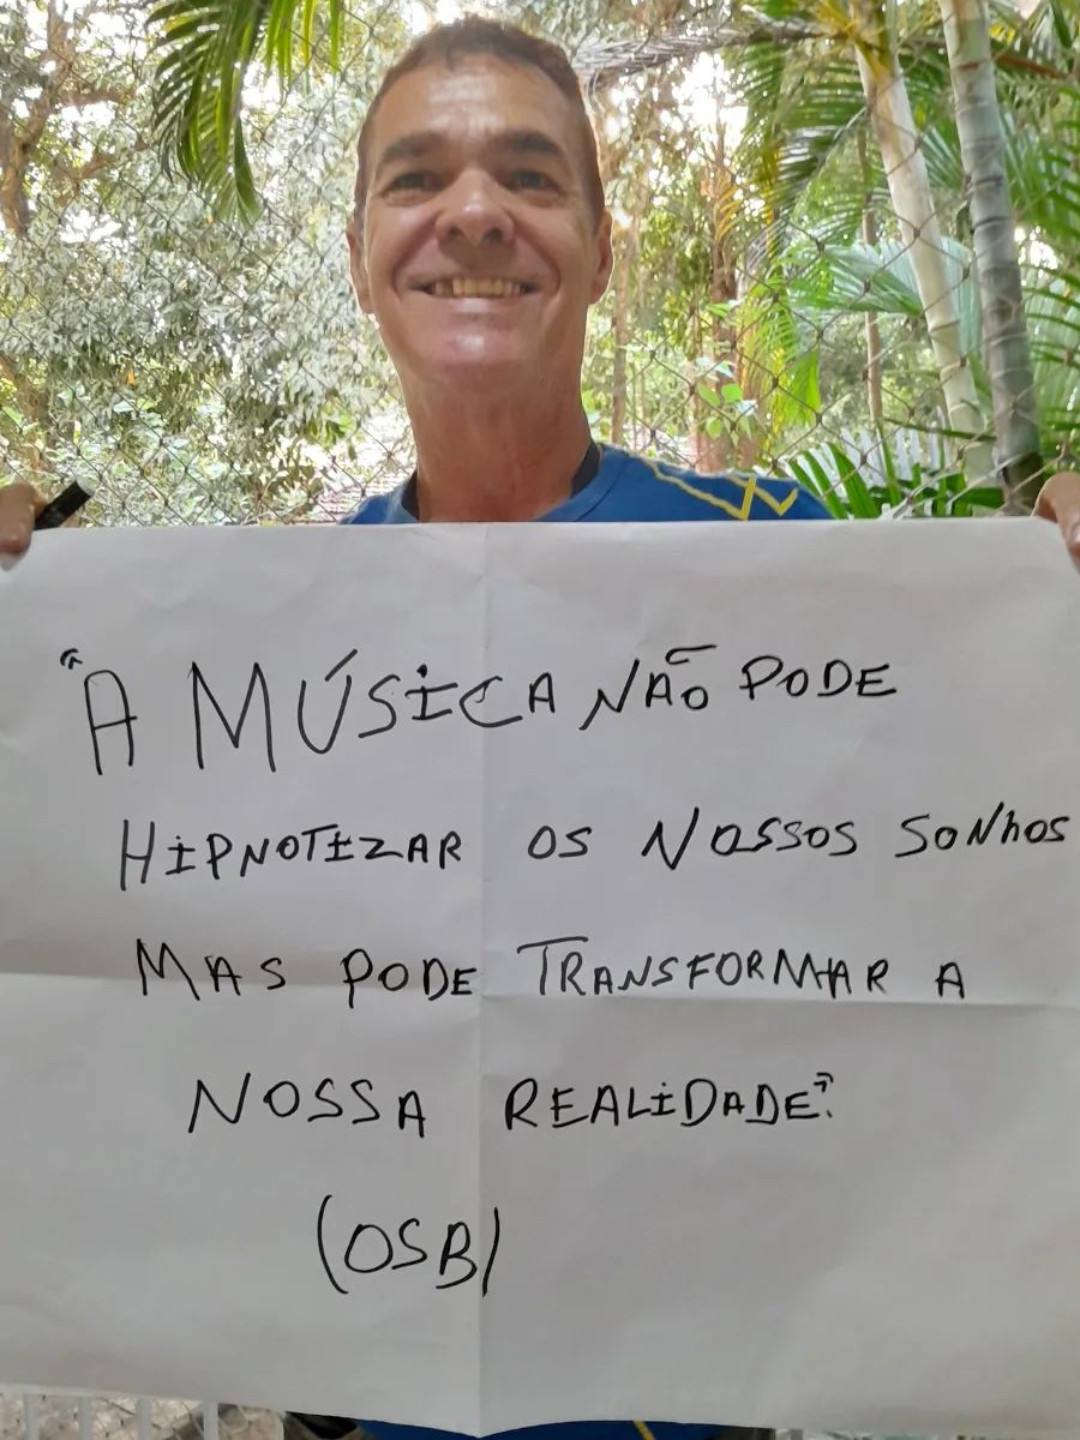 "A MÚSICA NÃO PODE
HIPNOTIZAR OS NOSSOS SONHOS
MAS PODE TRANSFORMAR A
NOSSA REALIDADE".
(OSB)